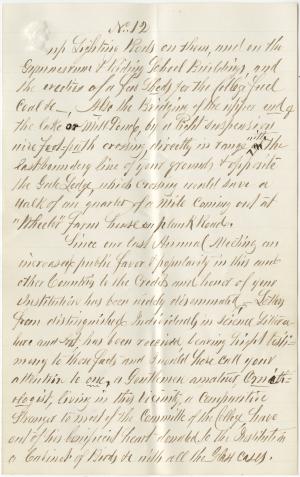 No. 12
up Lightning Rods on them, and on the
Gymnasium & Riding School Building, and
the erection of a few Sheds for the College fuel
Coal &c — Also the Bridging of the upper end of
the lake or Mill Pond, by a light suspension
wire foot-path crossing directly in range with the
East boundary line of your grounds & opposite
the Gate Lodge, which crossing would save a
walk of one quarter of a mile coming out at
"Wheeler" farm house on plank Road.
Since our last Annual Meeting an
increase of public favor & popularity in this and
other Countries to the Credit and honor of your
Institution has been widely disseminated, Letters
from distinguished Individuals in science, Litera-
ture and Art, has been received bearing high testi-
mony to these facts and I would here call your
attention to one, a Gentleman amateur Ornith-
ologist, living in this vicinity, a comparative
stranger to most of the Committee of the College, have
out of his beneficent heart donated to the Institution
a Cabinet of Birds &c with all the Glass cases.